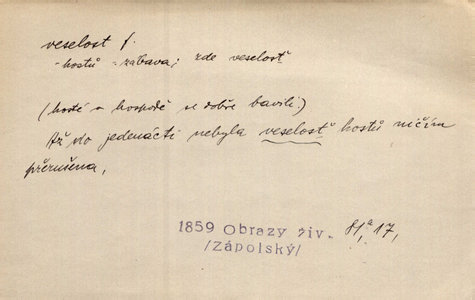 veselost f.
-hostů = zábava; zde veselosť
(hosté v hospodě se dobře bavili,)
Až do jedenácti nebyla veselosť hostů ničím
přerušena,
1859 Obrazy živ. 81,ª 17,
/Zápolský/